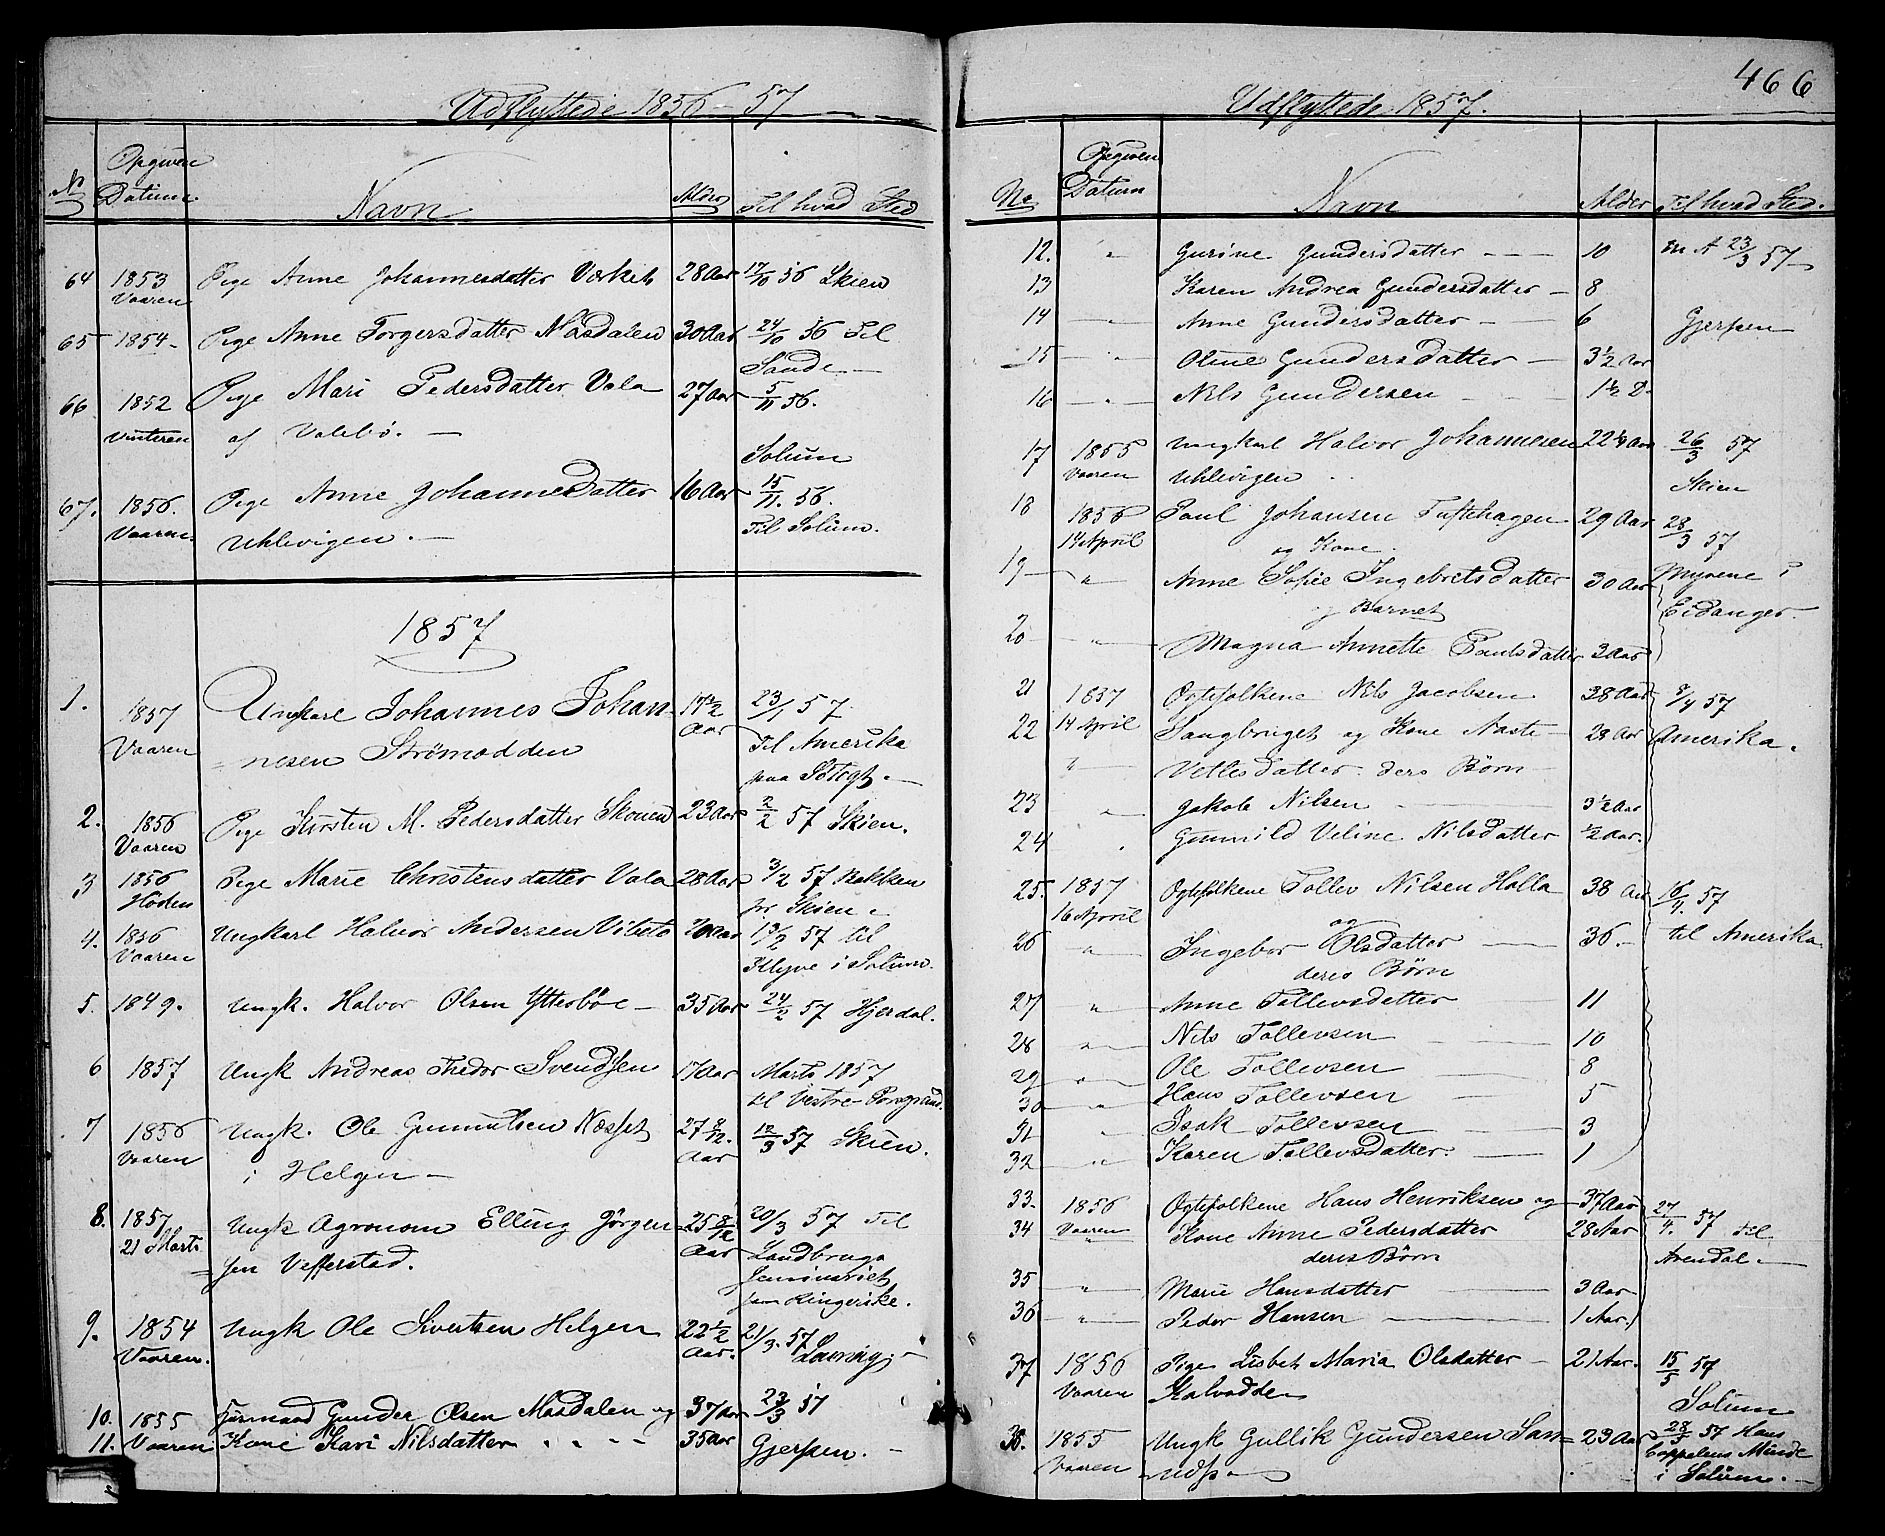 Udflyttede 1856-57
No
Opgiven Datum
Navn
Alder
Til hvad Sted
64 1853 Vaaren Pige Anne Johannesdatter Værket 28 Aar 17/10 56 Skien
65 1854 Pige Anne Torgersdatter Masdalen 30 Aar 24/10 56 Til Sande
66 1852 Vinteren Pige Mari Pedersdatter Vala 27 Aar 5/11 56.
af Valebø. Solum
67. 1856. Vaaren. Pige Anne Johannesdatter 16 Aar 15/11. 56.
Uhlevigen. Til Solum.
1857
1. 1857 Vaaren Ungkarl Johannes Johan- 17 1/2 Aar 23/1 57.
nesen Strømodden Til Amerika
paa Søtogt.
2. 1856 Vaaren Pige Kirsten M. Pedersdatter Skouen 23 Aar 2/2 57 Skien.
3 1856 Høsten Pige Marie Christensdatter Vala 28 Aar 3/2 57 Bakken
pr Skien.
4. 1856 Vaaren Ungkarl Halvor Andersen Vibeto 20 Aar 13/2 57 til
Klyve i Solum.
5. 1849. Ungk. Halvor Olsen Ytterbøe 35 Aar 24/2 57 Hjerdal.
6 1857 Ungk Andreas Thedor Svendsen 17 Aar Marts 1857
til Vestre Porsgrund.
7 1856 Vaaren Ungk. Ole Gunnulsen Næsset 27 8/12. Aar 12/3 57 Skien.
i Helgen
8. 1857 21 Marts Ungk Agronom Elling Jørgen- 25 8/12 Aar 20/3 57 Til
sen Vefferstad. Landbrugs
Seminariet
paa Ringerike.
9. 1854 Vaaren. Ungk Ole Sivertsen Helgen 22 1/2 Aar. 21/3. 57 Laurvig.
10. 1855 Gunder Olsen Masdalen og 37 Aar 23/3 57
11. Vaaren Kone Kari Nilsdatter 35 Aar Gjerpen.
466
Udflyttede 1857.
No
Opgiven Datum
Navn
Alder
Til hvad Sted.
12. " Gurine Gundersdatter 10 23/3 57
13 Karen Andrea Gundersdatter 8
14 " Anne Gundersdatter 6 Gjerpen
15 " Oline Gundersdatter 3 1/2 Aar
16 " Nils Gundersen 1 1/2 D.
17 1855 Vaaren Ungkarl Halvor Johannesen 22 1/2 Aar 26/3 57
Uhlevigen Skien
18 1856 14 April Paul Johansen Tuftehagen 29 Aar 28/3 57
og Kone.
19 " Anne Sofie Ingebretsdatter 30 Aar Myrene i
og Barnet Eidanger.
20 " Magna Annette Paulsdatter 3 Aar
21 1857 Ægtefolkene Nils Jacobsen 38 Aar 8/4 57
22 14 April Saugbruget og Kone Aaste 28 Aar Amerika.
" Vetlesdatter. ders Børn
23 " Jakob Nilsen 3 1/2 Aar
24 " Gunnild Veline Nilsdatter 1/2 Aar.
25. 1857 Ægtefolkene Tollev Nilsen Holla 38 Aar 16/4. 57
16 April og
26 " Ingebor Olsdatter 36. til Amerika
deres Børn
27 " Anne Tollevsdatter 11
28 " Nils Tollevsen 10
29 " Ole Tollevsen 8
30 " Hans Tollevsen 5
31 " Isak Tollevsen 3
32 " Karen Tollevsdatter. 1
33. 1856 Ægtefolkene Hans Henriksen og 37 Aar 27/4. 57
34 Vaaren Kone Anne Pedersdatter 28 Aar til
deres Børn Arendal.
35 " Marie Hansdatter 3 Aar
36 " Peder Hansen 1 Aar.
37 1856 Vaaren Pige Lisbet Maria Olsdatter 21 Aar. 15/5 57
Kalvodden Solum
38. 1855 Vaaren Ungk Gullik Gundersen San- 23 Aar 28/5 57 Hans
Cappelens Minde
i Solum.